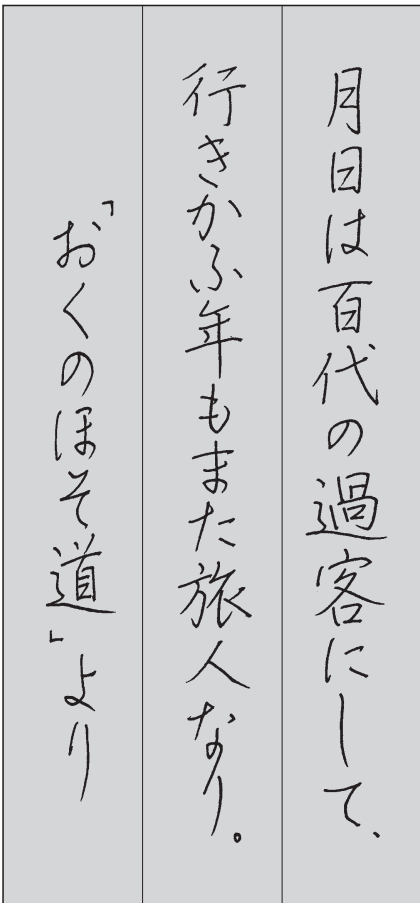 月日は百代の過客にして、
行きかふ年もまた旅人なり。
「おくのほそ道」より